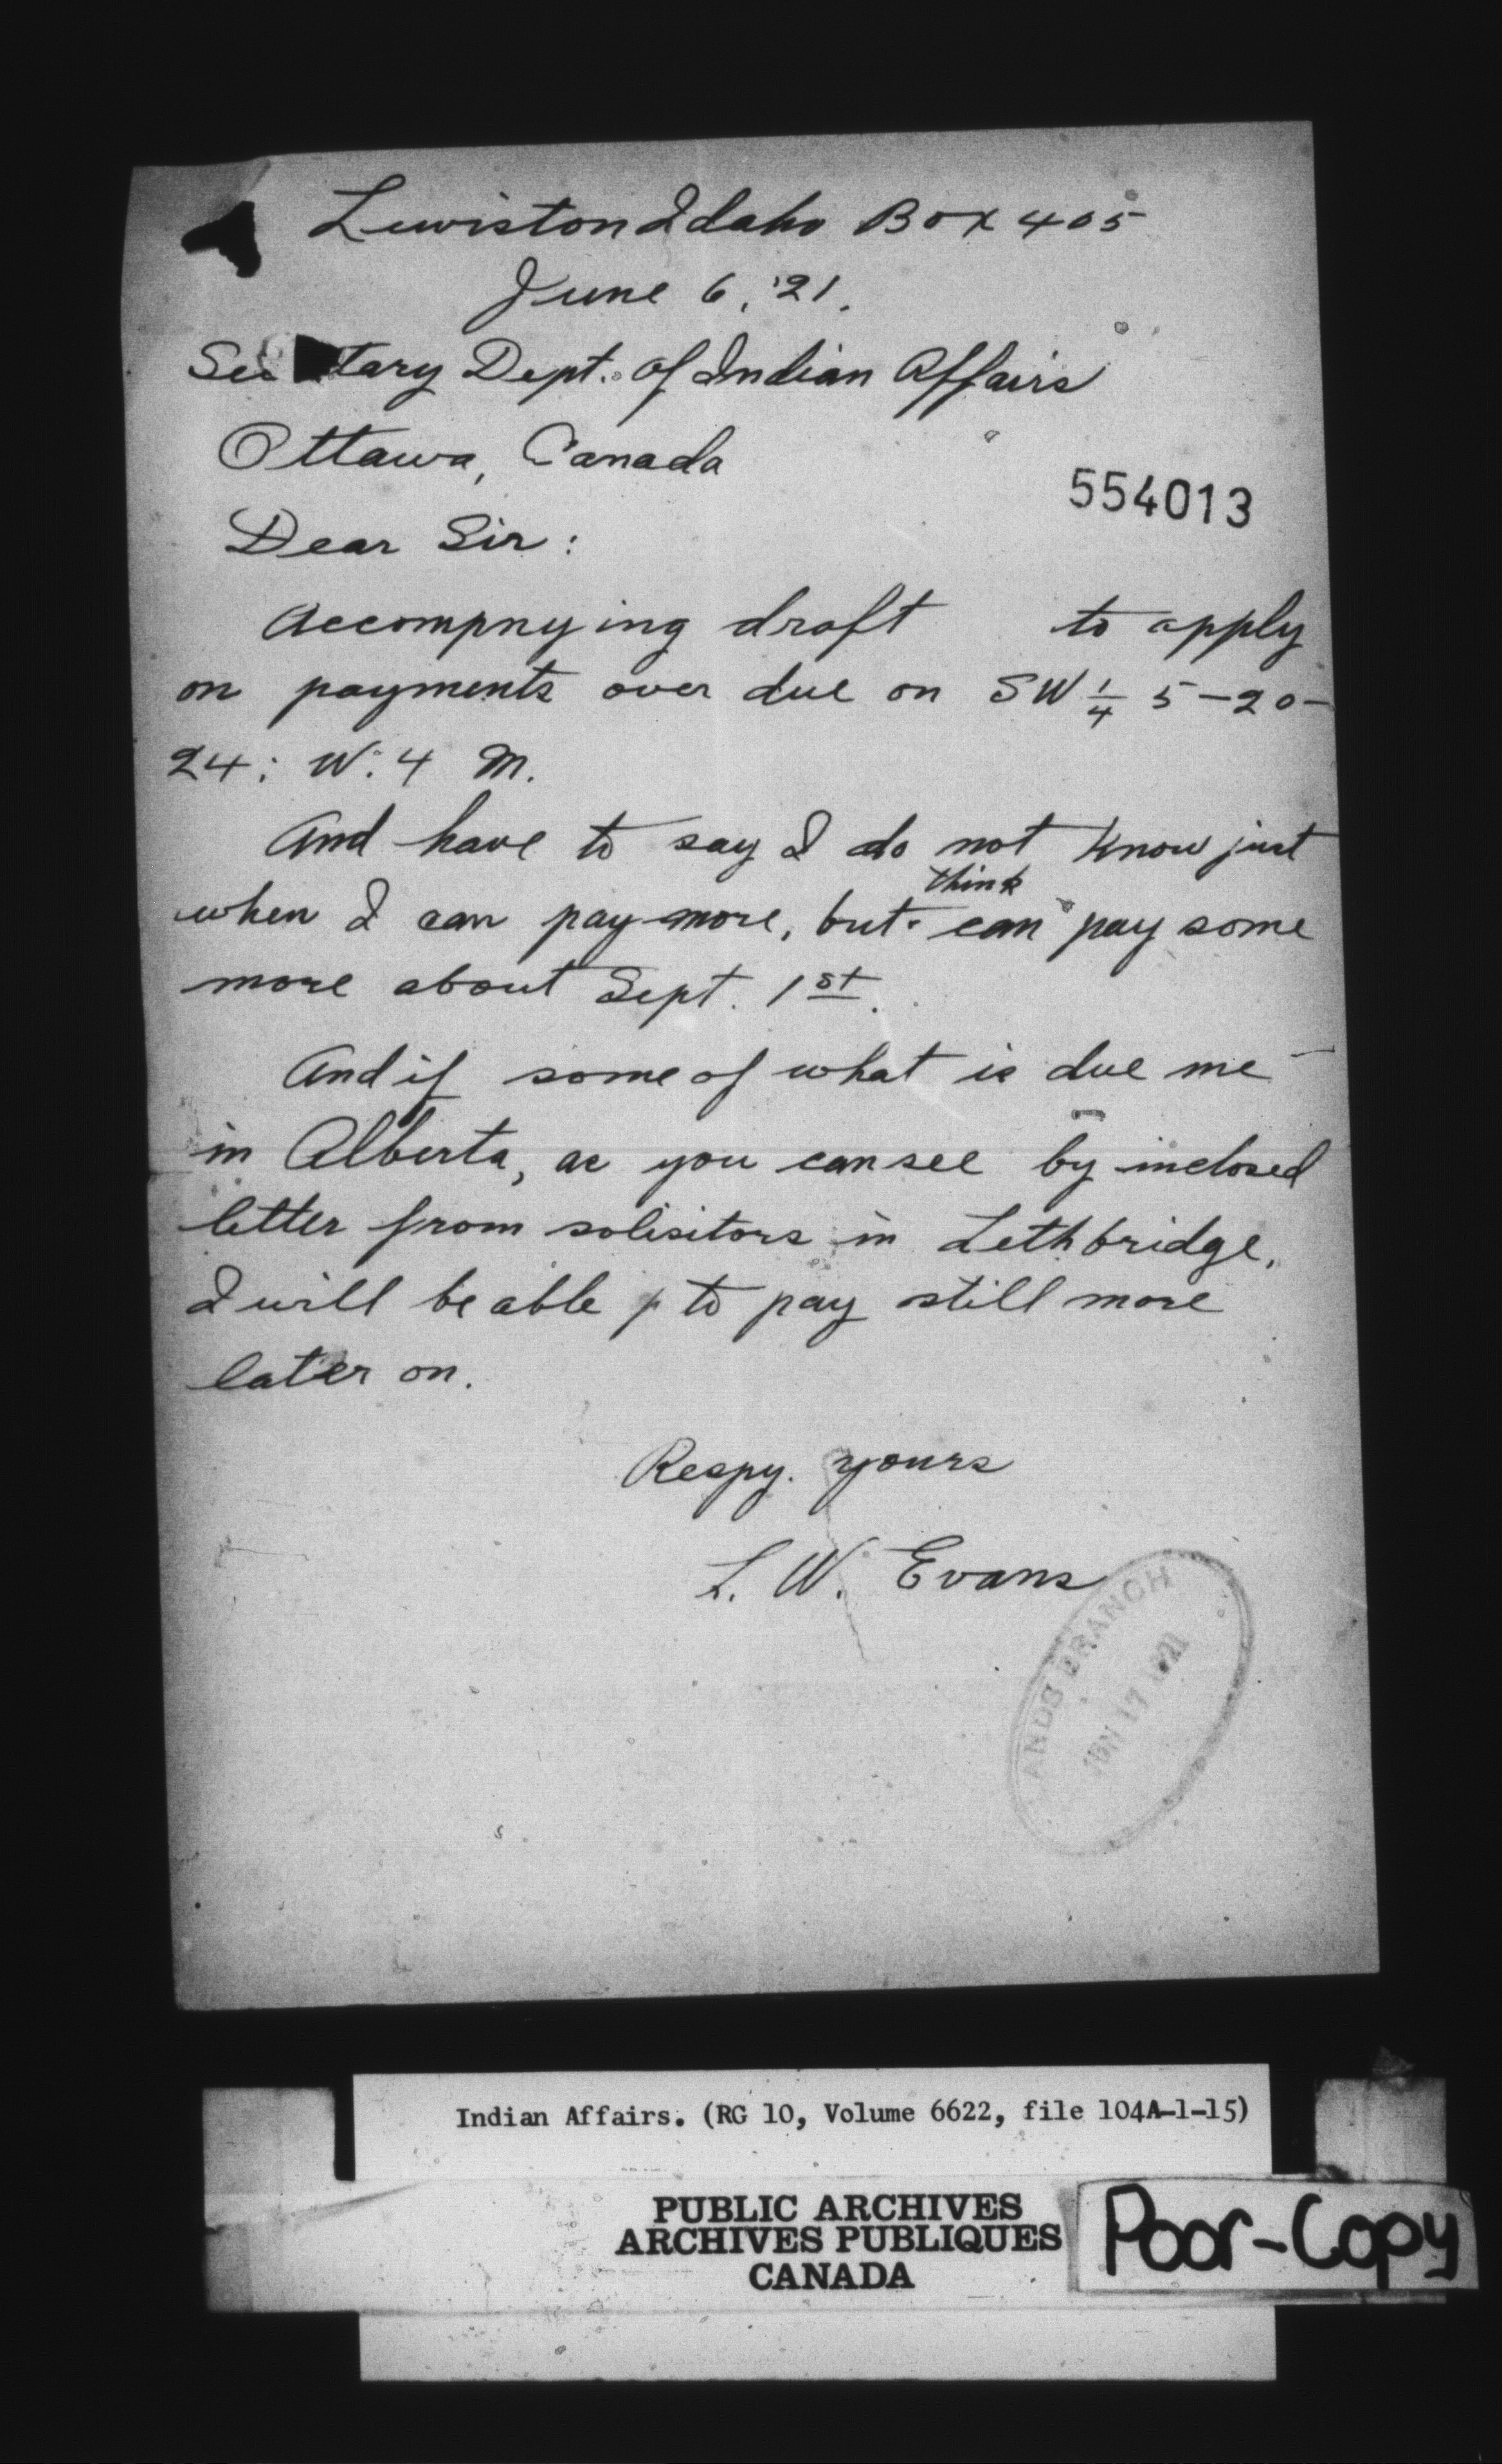 Lewiston Idaho Box 405
June 6, '21.
Sec tary Dept. of Indian Affairs
Ottawa, Canada
554013
Dear Sir:
Accompnying draft to apply
on payments over due on SW 1/4 5-20-
24; W. 4 M.
And have to say I do not know just
think
when I can pay more, but can pay some
more about Sept. 1st.
And if some of what is due me
in Alberta, as you can see by inclosed
letter from solisitors in Lethbridge,
I will be able to pay still more
later on.
Respy. yours
L. W. Evans
ANDS BRANCH
JUN 17 1921
Indian Affairs. (RG 10, Volume 6622, file 104A-1-15)
PUBLIC ARCHIVES
ARCHIVES PUBLIQUES
CANADA
Poor-Copy